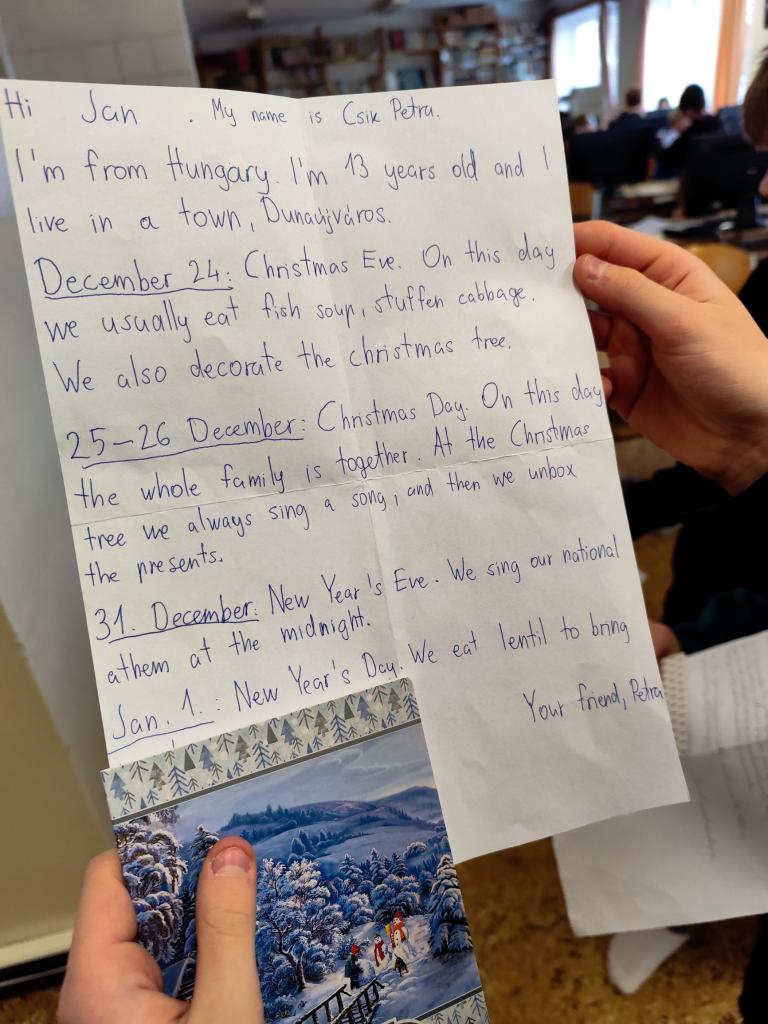 Hi Jan . My name is Csik Petra.
I'm from Hungary. I'm 13 years old and I
live in a town, Dunaújváros.
December 24: Christmas Eve. On this day
we usually eat fish soup, stuffen cabbage.
We also decorate the christmas tree.
25-26 December: Christmas Day. On this day
the whole family is together. At the Christmas
tree we always sing a song, and then we unbox
the presents.
31. December: New Year's Eve. We sing our national
athem at the midnight.
Jan. 1.: New Year's Day. We eat lentil to bring
Your friend, Petra